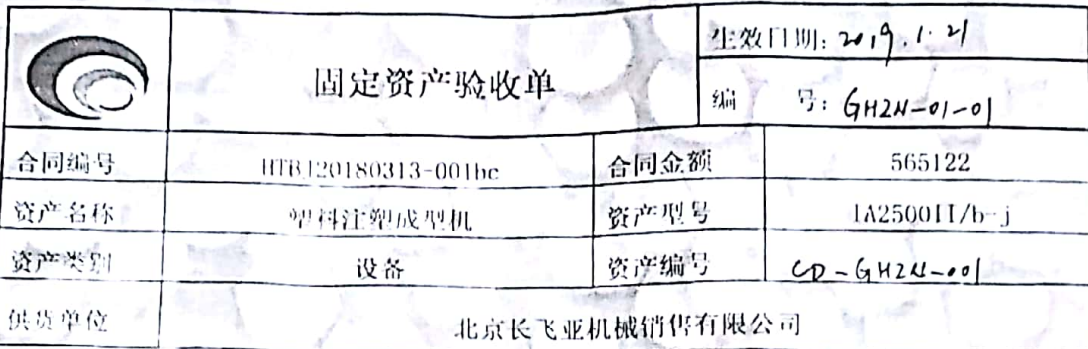 固定资产验收单
生效日期: 2019.1.21
编 号: GHZN-01-01
合同编号 HTBJ20180313-001bc 合同金额 565122
资产名称 塑料注塑成型机 资产型号 IA2500II/b-j
资产类别 设备 资产编号 CD-GHZN-001
供货单位 北京长飞亚机械销售有限公司